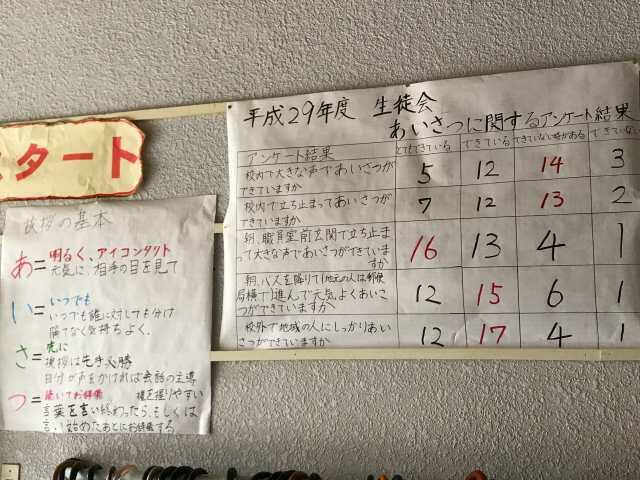 平成29年度 生徒会
あいさつに関するアンケート結果
アンケート結果
とてもできている
できている
できていない時がある
できていない
校内で大きな声であいさつが
できていますか
5 12 14 3
校内で立ち止まってあいさつが
できていますか
7 12 13 2
朝、職員室前玄関で立ち止ま
って大きな声であいさつができていま
すか
16 13 4 1
朝、バスを降りて(地元の人は郵便
局横で)進んで元気よくあいさ
つができていますか
12 15 6 1
校外で地域の人にしっかりあい
さつができていますか
12 17 4 1
タート
挨拶の基本
あ=明るく、アイコンタクト
元気に、相手の目を見て
い=いつでも
いつでも誰に対しても分け
隔てなく気持ちよく。
さ=先に
挨拶は先手必勝
自分が声をかければ会話の主導
権を握りやすい
つ=続いてお辞儀
言葉を言い終わったら、もしくは
言い始めたあとにお辞儀する